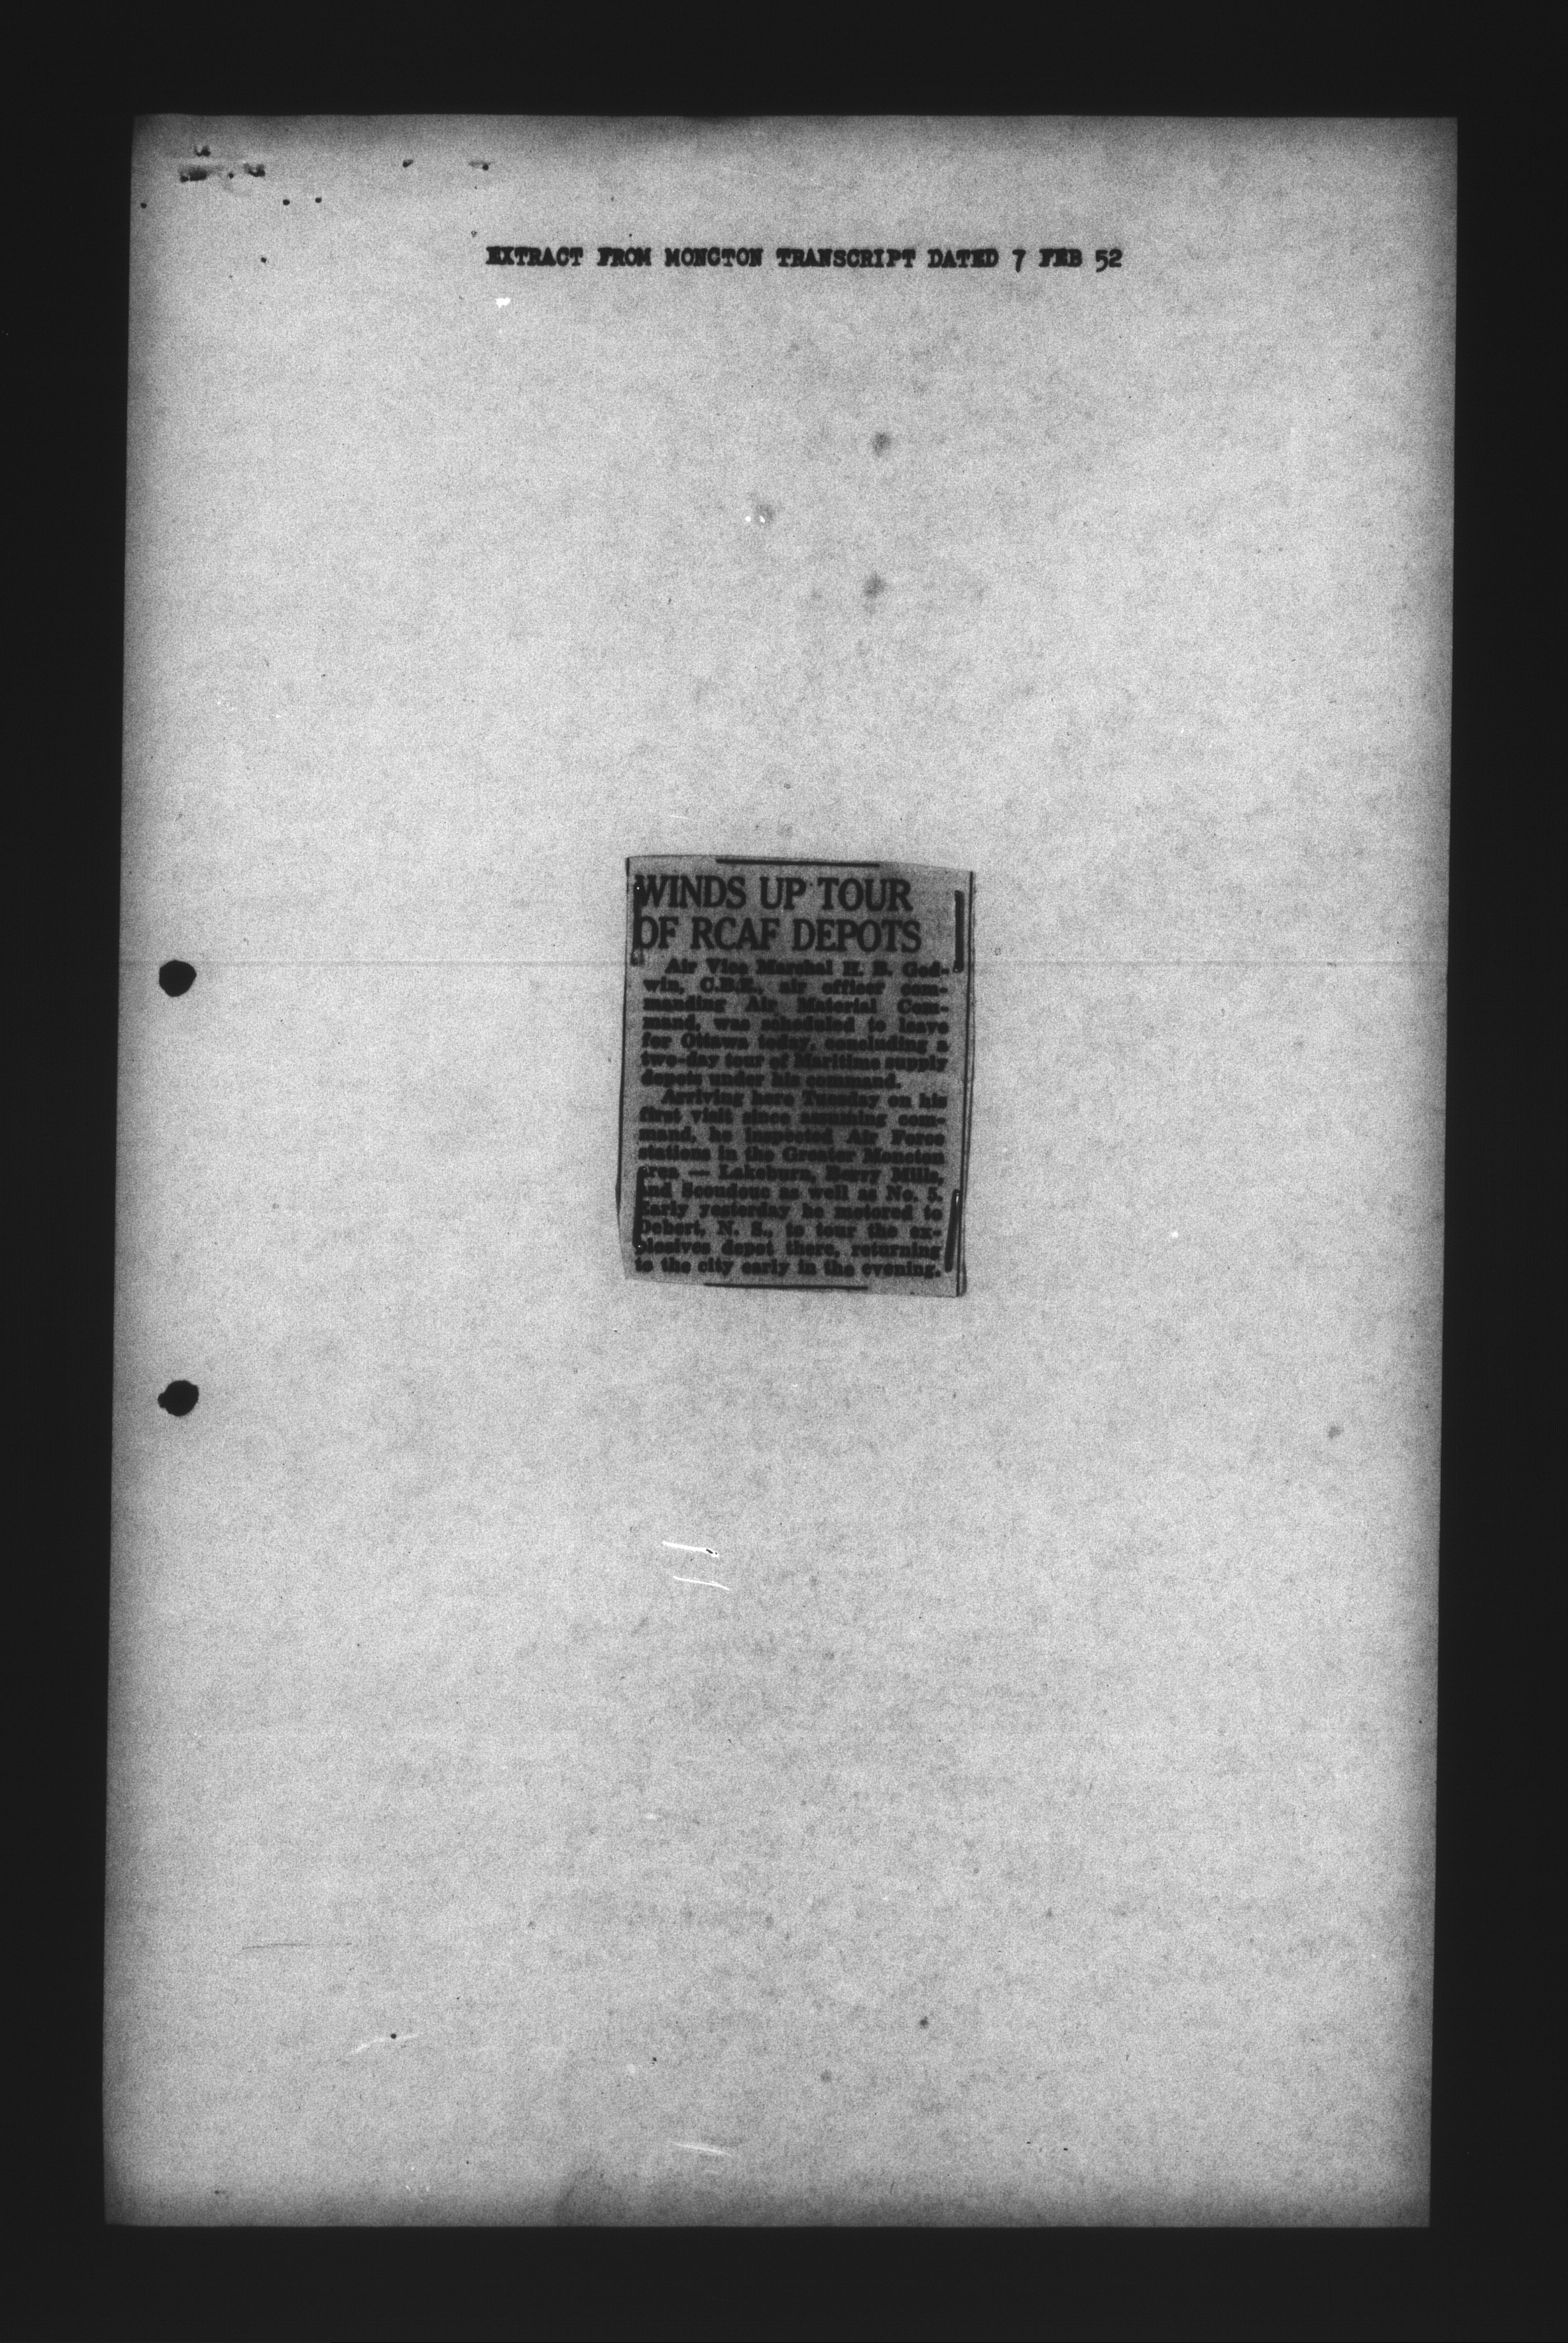 EXTRACT FROM MONCTON TRANSCRIPT DATED 7 FEB 52
WINDS UP TOUR
OF RCAF DEPOTS
Air Vice Marshal H. B. God-
win, C.B.E., air officer com-
manding Air Material Com-
mand, was scheduled to leave
for Ottawa today, concluding a
two-day tour of Maritime supply
depots under his command.
Arriving here Tuesday on his
first visit since assuming com-
mand, he inspected Air Force
stations in the Greater Moncton
area — Lakeburn, Mills,
and Scoudouc as well as No. 5.
Early yesterday he motored to
Debert, N. S., to tour the ex-
plosives depot there, returning
to the city early in the evening.